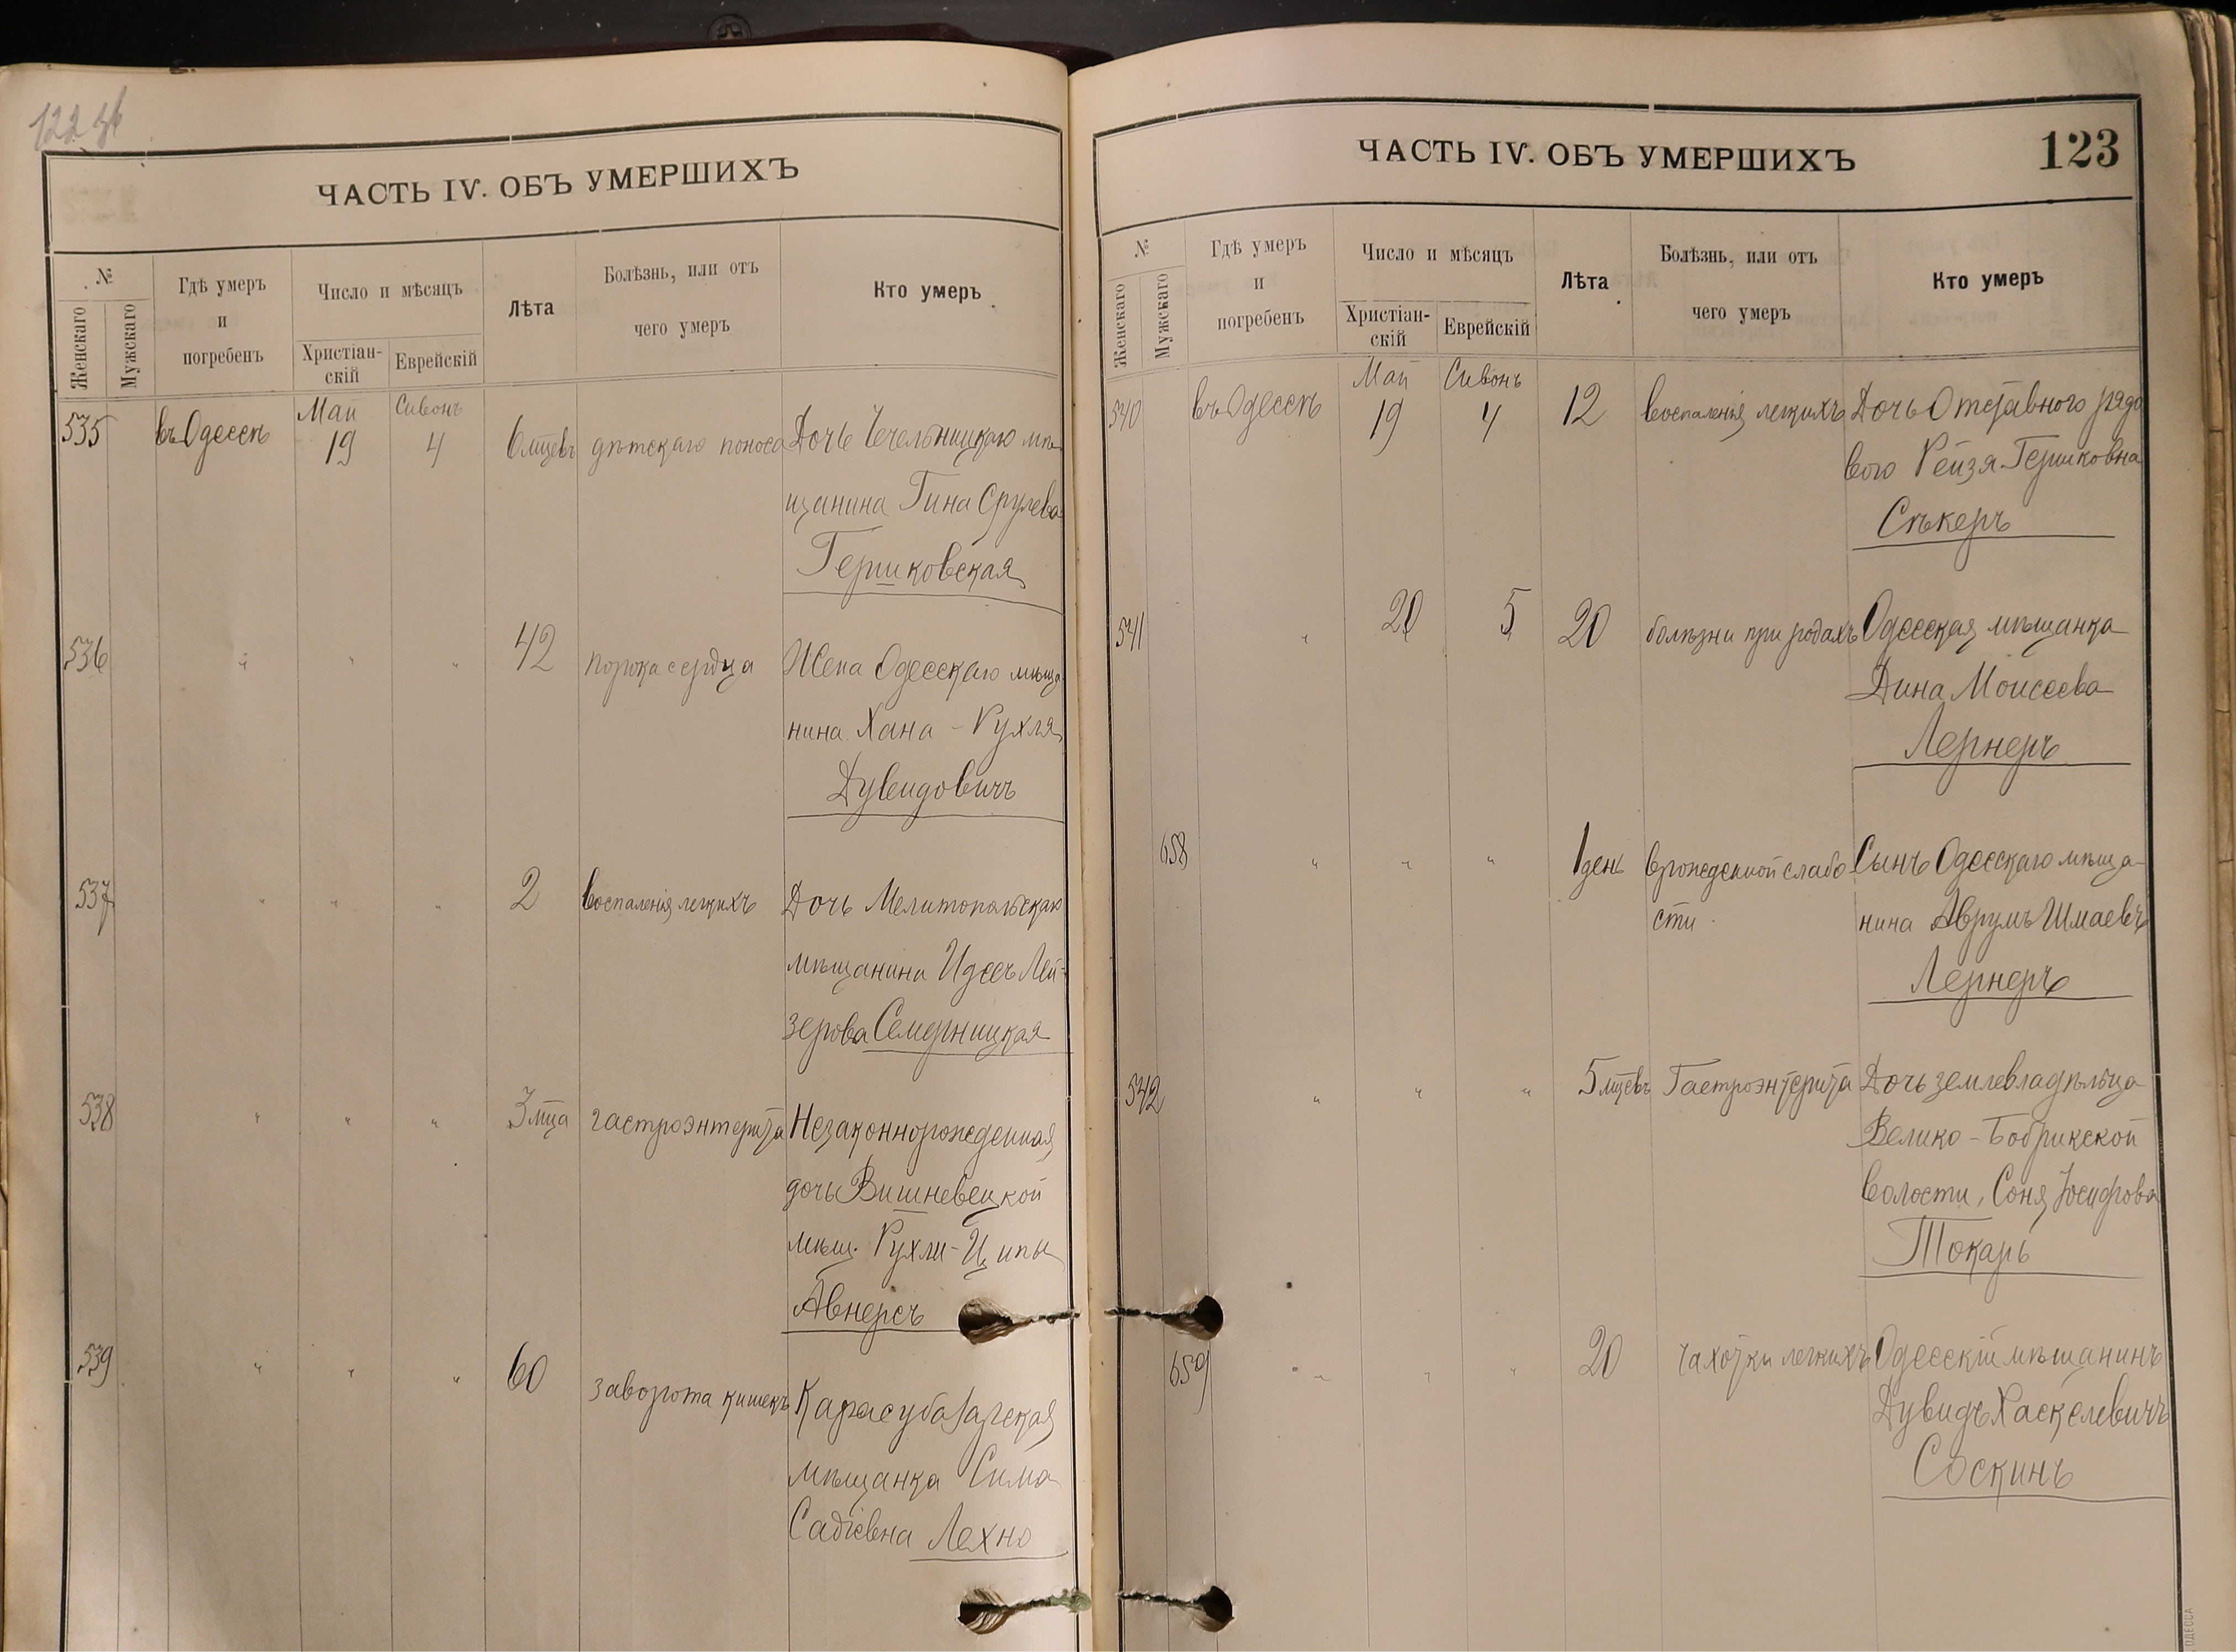 122 об
ЧАСТЬ IV. ОБЪ УМЕРШИХЪ
№
Женскаго
Мужскаго
Гдѣ умеръ
и
погребенъ
Число и мѣсяцъ
Христіан-
скій
Еврейскій
Лѣта
Болѣзнь, или отъ
чего умеръ
Кто умеръ
535 въ Одессѣ Май 19 Сивонъ 4 6 мцевъ дѣтскаго поноса Дочь Чечельницкаго мѣ-
щанина Гина Срулева
Гершковская
536 " " " 42 порока сердца Жена Одесскаго мѣща
нина Хана - Рухля
Дувидовичъ
537 " " " 2 воспаленія легкихъ Дочь Мелитопольскаго
мѣщанина Идесъ Лей-
зерова Семерницкая
538 " " " 3 мца гастроэнтерита Незаконнорожденная
дочь Вишневецкой
мѣщ. Рухли-Ципы
Авнересъ
539 " " " 60 заворота кишекъ Карасубазарская
мѣщанка Сима
Садіевна Лехно
ЧАСТЬ IV. ОБЪ УМЕРШИХЪ
123
№
Женскаго
Мужскаго
Гдѣ умеръ
и
погребенъ
Число и мѣсяцъ
Христіан-
скій
Еврейскій
Лѣта
Болѣзнь, или отъ
чего умеръ
Кто умеръ
540 въ Одессѣ Май 19 Сивонъ 4 12 воспаленія легкихъ Дочь Отставного рядо
вого Рейзя Гершковна
Сѣкеръ
541 " 20 5 20 болѣзни при родахъ Одесская мѣщанка
Дина Моисеева
Лернеръ
658 " " " 1 день врожденной слабо Сынъ Одесскаго мѣща-
сти нина Аврумъ Шмаевъ
Лернеръ
542 " " " 5 мцевъ Гастроэнтерита Дочь землевладѣльца
Велико-Бобрикской
волости, Соня Іосифова
Токарь
659 " " " 20 чахотки легкихъ Одесскій мѣщанинъ
Дувидъ Хаскелевичъ
Соскинъ
ОДЕССА